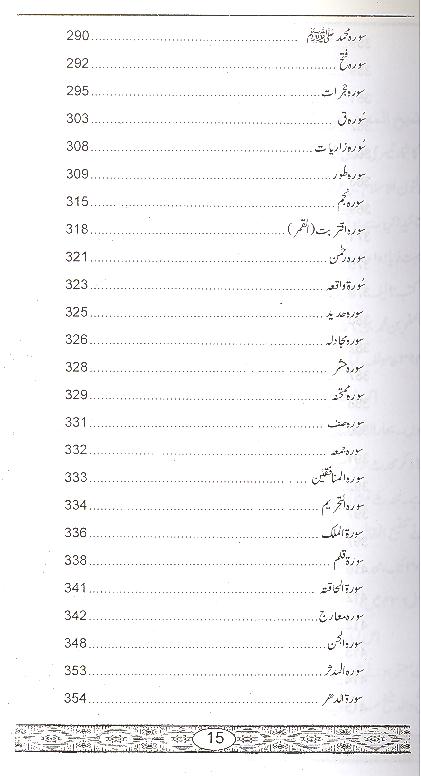 سورہ محمد ﷺ ........ 290
سورہ فتح ........ 292
سورہ حجرات ........ 295
سُورہ ق ........ 303
سُورہ زاریات ........ 308
سورہ طور ........ 309
سورہ نجم ........ 315
سورہ اقتربت (القمر) ........ 318
سورہ رحمٰن ........ 321
سُورۃ واقعہ ........ 323
سورہ حدید ........ 325
سورہ مجادلہ ........ 326
سورہ حشر ........ 328
سورہ ممتحنہ ........ 329
سورہ صف ........ 331
سورہ جمعہ ........ 332
سورہ المنافقین ........ 333
سورہ التحریم ........ 334
سورۃ الملک ........ 336
سورۃ قلم ........ 338
سورۃ الحاقتہ ........ 341
سورہ معارج ........ 342
سورہ الجن ........ 348
سورہ المدثر ........ 353
سورۃ الدھر ........ 354
15